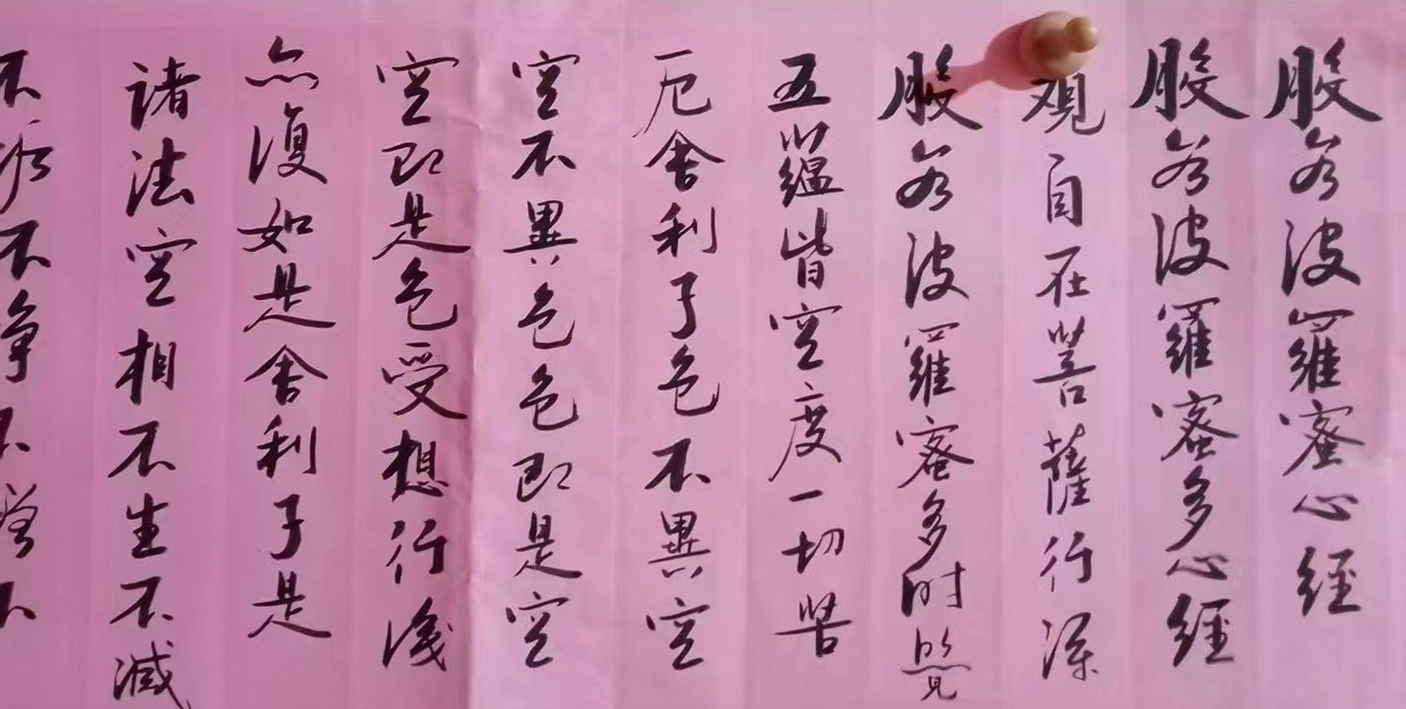 般若波羅蜜心経
般若波羅蜜多心經
观自在菩薩行深
般若波羅蜜多时照見
五蘊皆空度一切苦
厄舍利子色不異空
空不異色色即是空
空即是色受想行識
亦復如是舍利子是
諸法空相不生不滅
不垢不净不增不